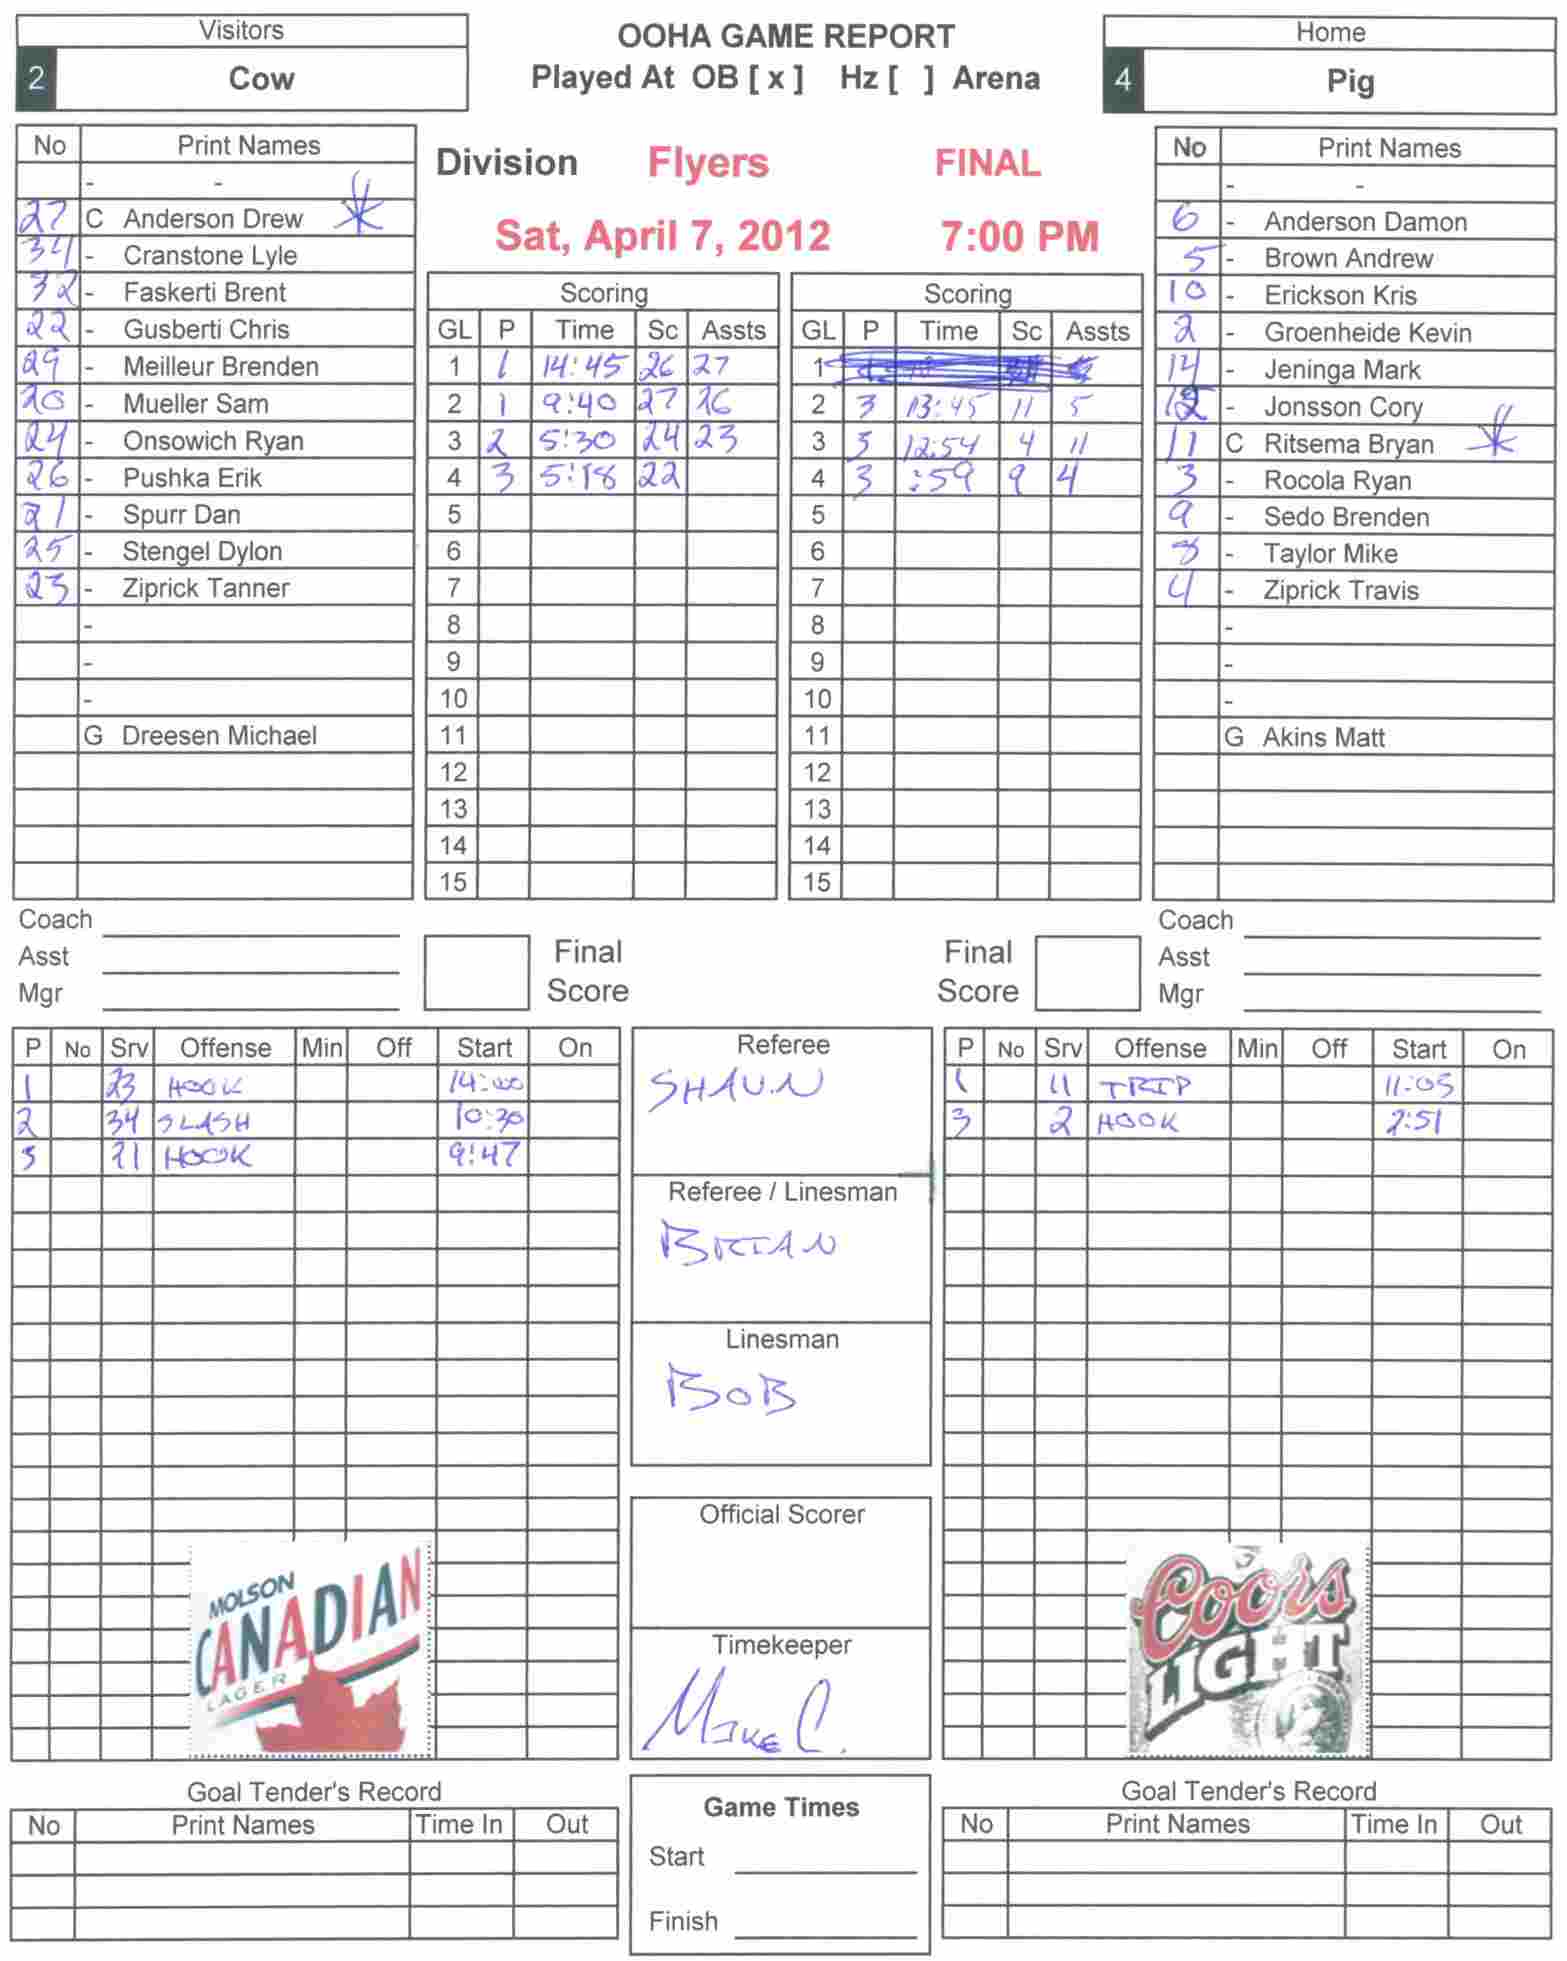 Visitors
2 Cow
OOHA GAME REPORT
Played At OB [ x ] Hz [ ] Arena
Home
4 Pig
No Print Names
- -
27 C Anderson Drew
34 - Cranstone Lyle
32 - Faskerti Brent
22 - Gusberti Chris
29 - Meilleur Brenden
20 - Mueller Sam
24 - Onsowich Ryan
26 - Pushka Erik
21 - Spurr Dan
25 - Stengel Dylon
23 - Ziprick Tanner
-
-
-
G Dreesen Michael
Division Flyers FINAL
Sat, April 7, 2012 7:00 PM
Scoring
GL P Time Sc Assts
1 1 14:45 26 27
2 1 9:40 27 26
3 2 5:30 24 23
4 3 5:18 22
5
6
7
8
9
10
11
12
13
14
15
Scoring
GL P Time Sc Assts
1
2 3 13:45 11 5
3 3 12:54 4 11
4 3 :59 9 4
5
6
7
8
9
10
11
12
13
14
15
No Print Names
- -
6 - Anderson Damon
5 - Brown Andrew
10 - Erickson Kris
2 - Groenheide Kevin
14 - Jeninga Mark
12 - Jonsson Cory
11 C Ritsema Bryan
3 - Rocola Ryan
9 - Sedo Brenden
8 - Taylor Mike
4 - Ziprick Travis
-
-
-
G Akins Matt
Coach
Asst
Mgr
Final
Score
Final
Score
Coach
Asst
Mgr
P No Srv Offense Min Off Start On
1 23 HOOK 14:00
2 34 SLASH 10:30
3 21 HOOK 9:47
Referee
SHAUN
Referee / Linesman
BRIAN
Linesman
BOB
Official Scorer
Timekeeper
MIKE C.
P No Srv Offense Min Off Start On
1 11 TRIP 11:05
3 2 HOOK 2:51
MOLSON
CANADIAN
LAGER
Coors
LIGHT
Goal Tender's Record
No Print Names Time In Out
Game Times
Start
Finish
Goal Tender's Record
No Print Names Time In Out